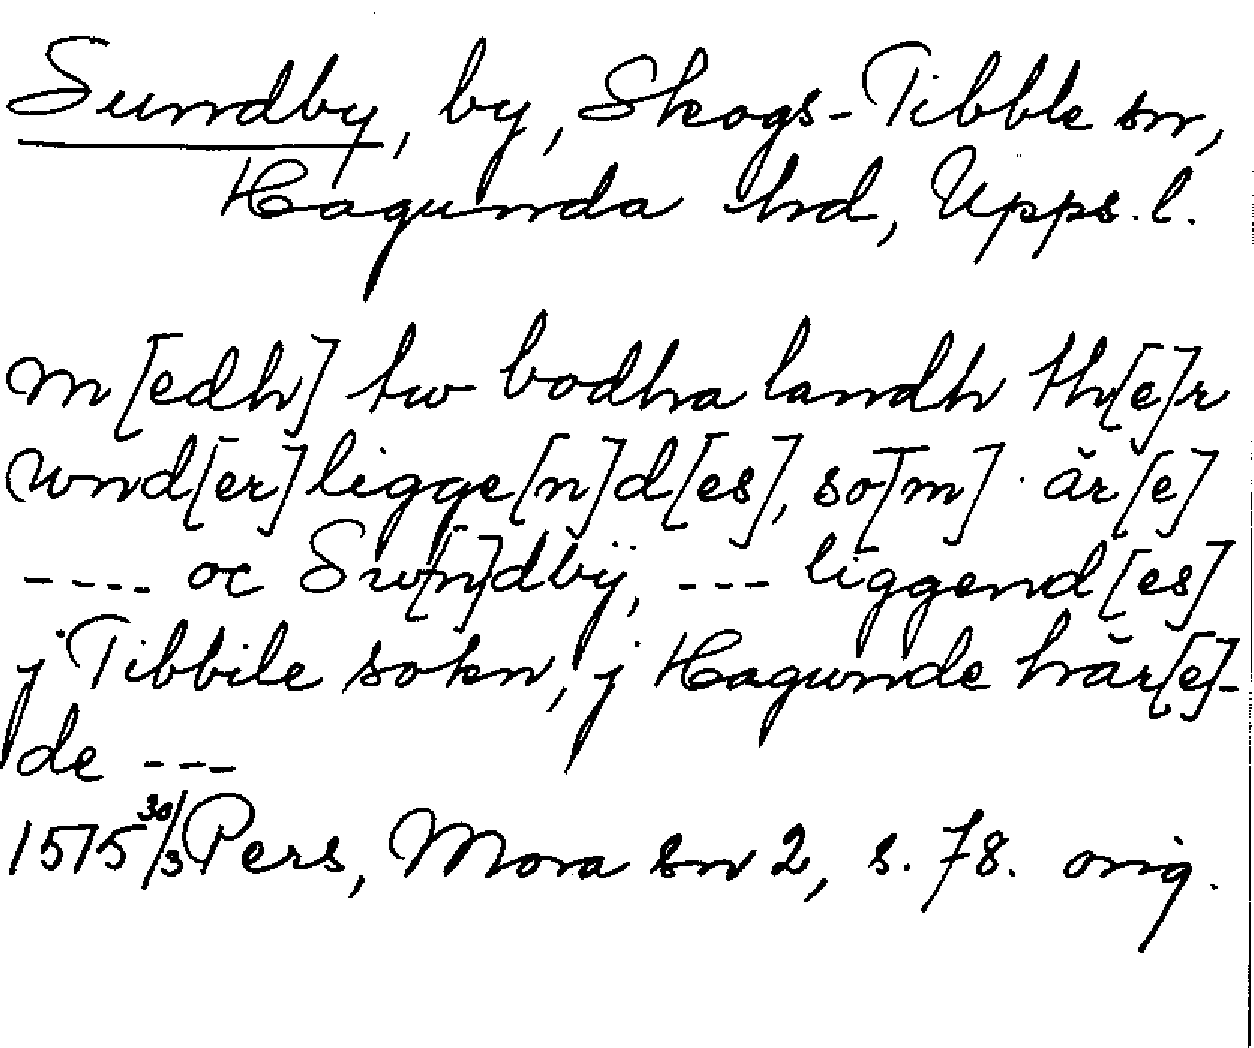 Sundby, by, Skogs-Tibble sn,
Hagunda hd, Upps. l.
m[edh] tw bodha landh th[e]r
wnd[er]ligge[n]d[es], so[m] är[e]
---- oc Sw[n]dbÿ, --- liggend[es]
j Tibbile sokn, j Hagwnde här[e]-
de ---
1515 30/3 Pers, Mora sn 2, s. 78. orig.